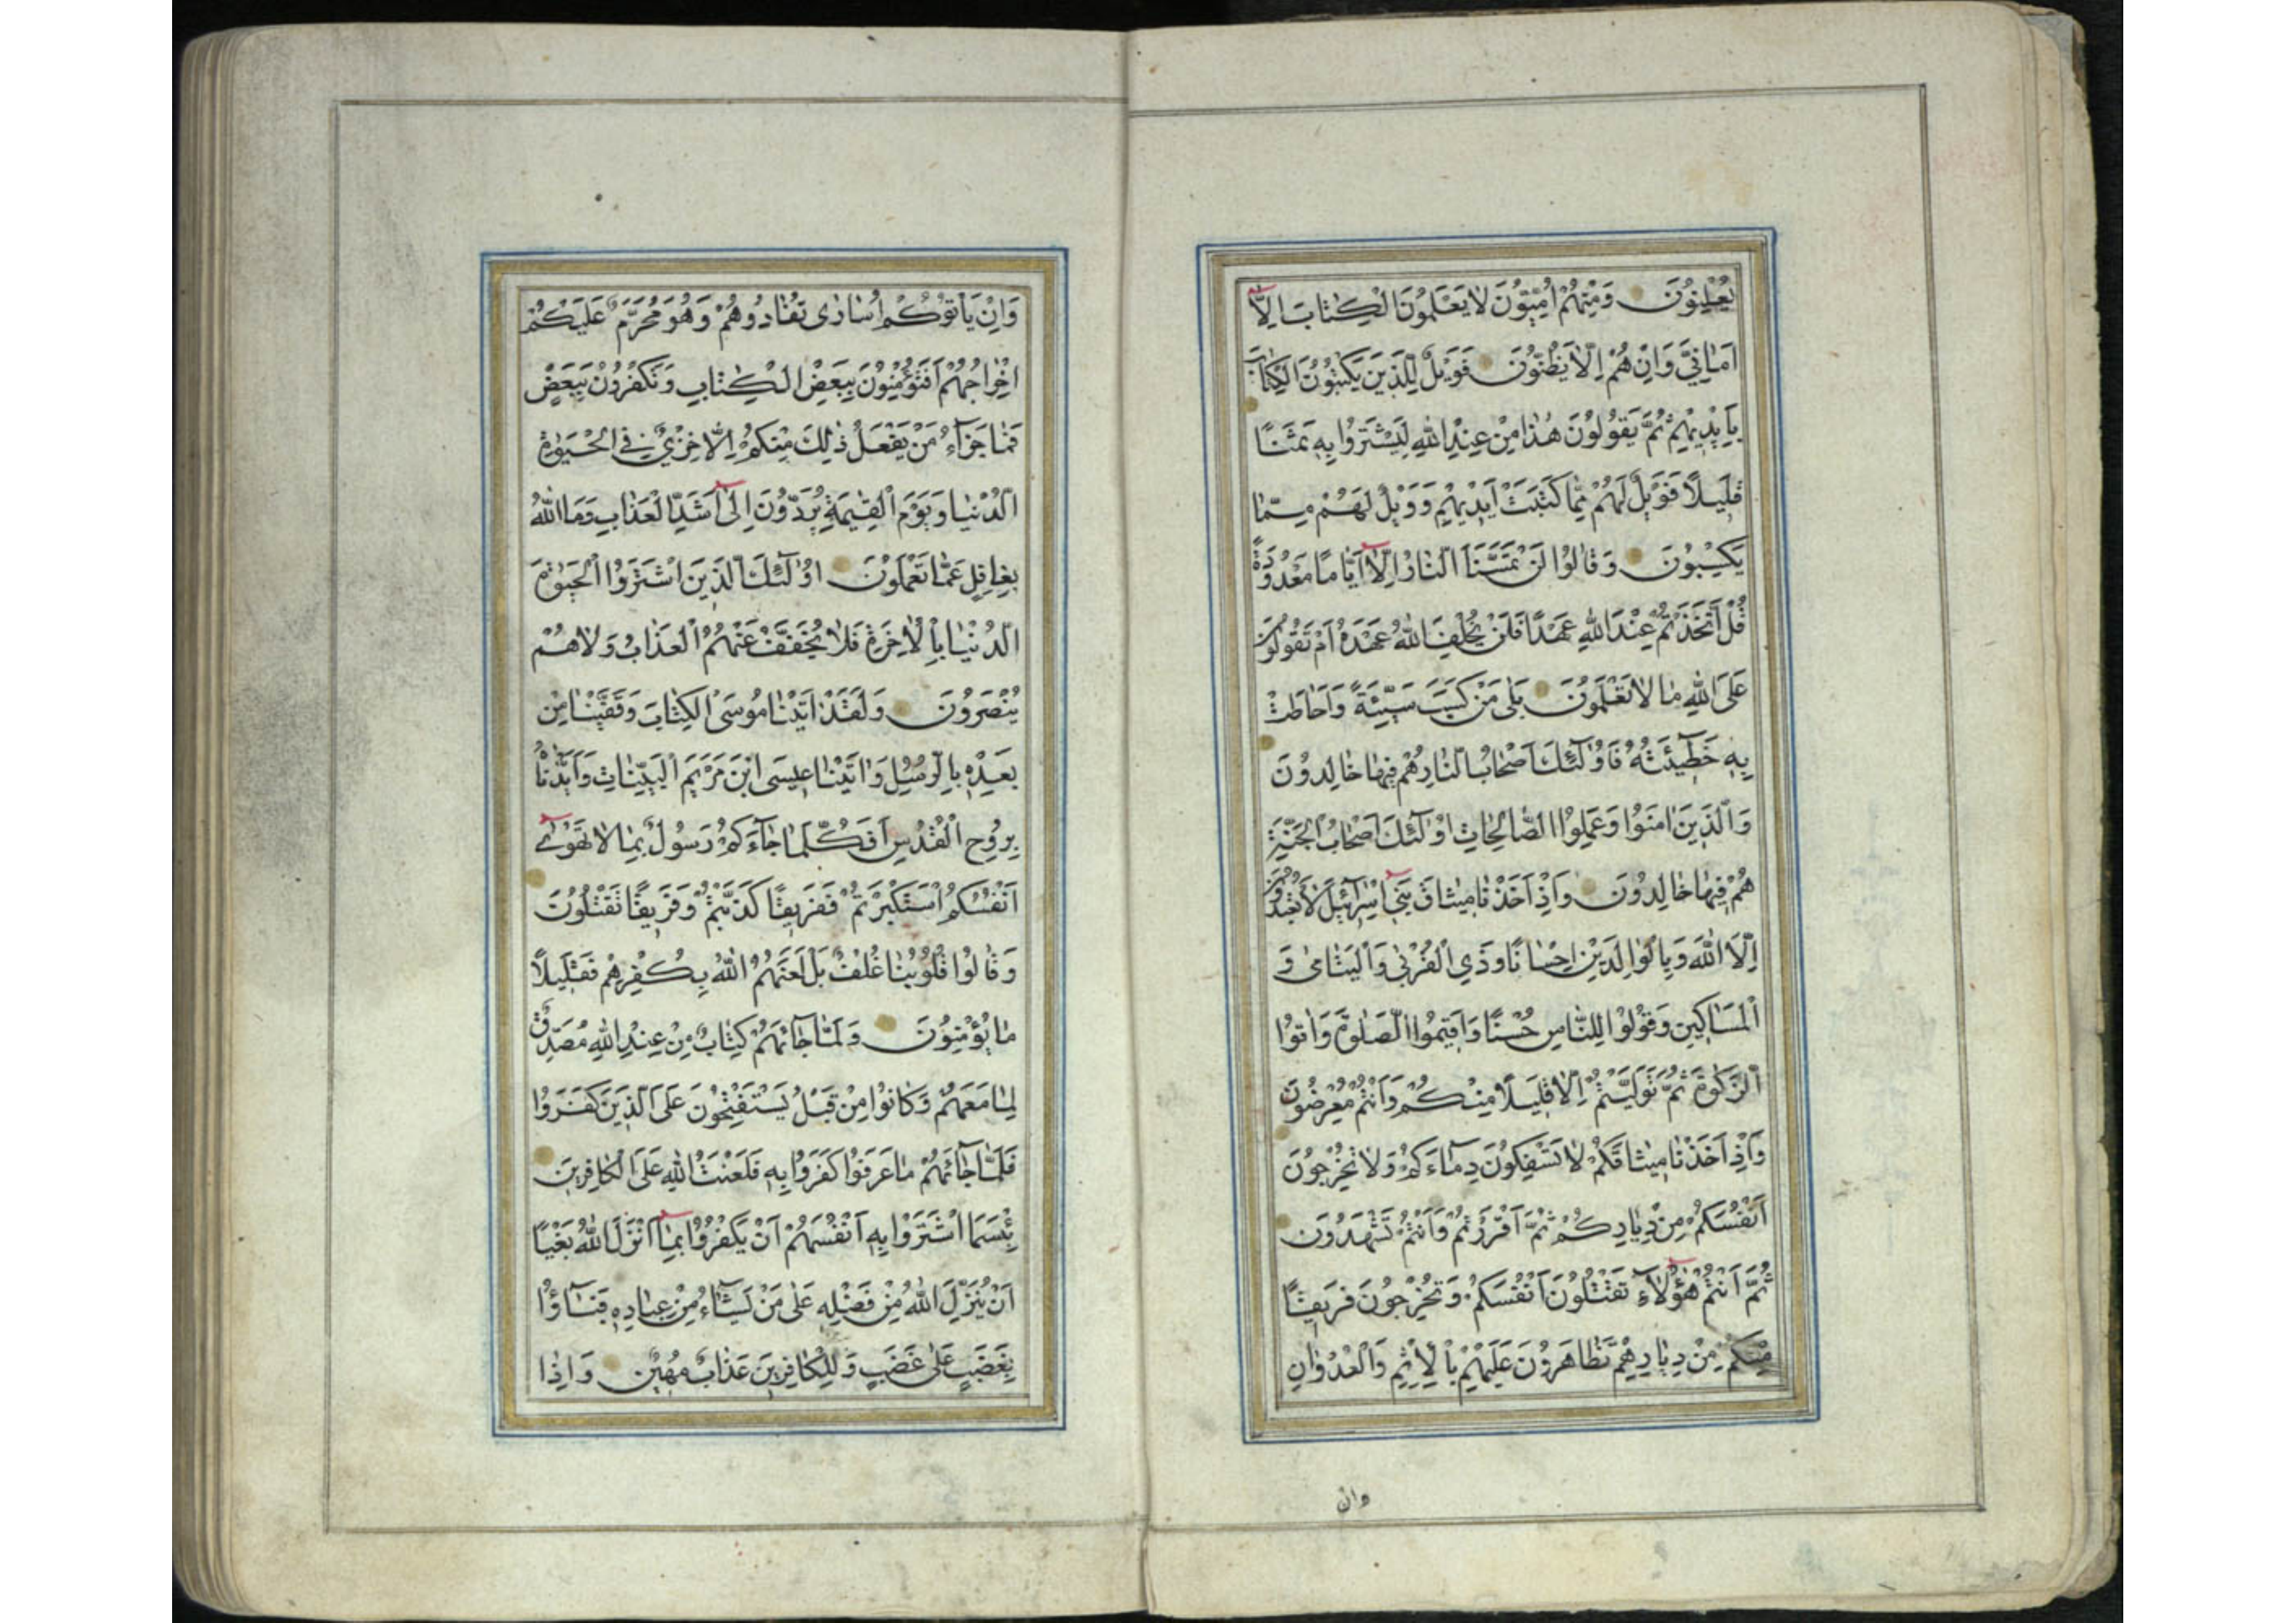 يُعْلِنُونَ وَمِنْهُمْ اُمِّيُّونَ لَا يَعْلَمُونَ الْكِتَابَ اِلَّا
اَمَانِيَّ وَاِنْ هُمْ اِلَّا يَظُنُّونَ فَوَيْلٌ لِلَّذِينَ يَكْتُبُونَ الْكِتَابَ
بِاَيْدِيهِمْ ثُمَّ يَقُولُونَ هٰذَا مِنْ عِنْدِ اللّٰهِ لِيَشْتَرُوا بِهِ ثَمَنًا
قَلِيلًا فَوَيْلٌ لَهُمْ مِمَّا كَتَبَتْ اَيْدِيهِمْ وَوَيْلٌ لَهُمْ مِمَّا
يَكْسِبُونَ وَقَالُوا لَنْ تَمَسَّنَا النَّارُ اِلَّا اَيَّامًا مَعْدُودَةً
قُلْ اَتَّخَذْتُمْ عِنْدَ اللّٰهِ عَهْدًا فَلَنْ يُخْلِفَ اللّٰهُ عَهْدَهُ اَمْ تَقُولُونَ
عَلَى اللّٰهِ مَا لَا تَعْلَمُونَ بَلٰى مَنْ كَسَبَ سَيِّئَةً وَاَحَاطَتْ
بِهِ خَطِيٓئَتُهُ فَاُولٰٓئِكَ اَصْحَابُ النَّارِ هُمْ فِيهَا خَالِدُونَ
وَالَّذِينَ اٰمَنُوا وَعَمِلُوا الصَّالِحَاتِ اُولٰٓئِكَ اَصْحَابُ الْجَنَّةِ
هُمْ فِيهَا خَالِدُونَ وَاِذْ اَخَذْنَا مِيثَاقَ بَنِٓي اِسْرَآئِيلَ لَا تَعْبُدُونَ
اِلَّا اللّٰهَ وَبِالْوَالِدَيْنِ اِحْسَانًا وَذِي الْقُرْبٰى وَالْيَتَامٰى وَ
الْمَسَاكِينِ وَقُولُوا لِلنَّاسِ حُسْنًا وَاَقِيمُوا الصَّلٰوةَ وَاٰتُوا
الزَّكٰوةَ ثُمَّ تَوَلَّيْتُمْ اِلَّا قَلِيلًا مِنْكُمْ وَاَنْتُمْ مُعْرِضُونَ
وَاِذْ اَخَذْنَا مِيثَاقَكُمْ لَا تَسْفِكُونَ دِمَآءَكُمْ وَلَا تُخْرِجُونَ
اَنْفُسَكُمْ مِنْ دِيَارِكُمْ ثُمَّ اَقْرَرْتُمْ وَاَنْتُمْ تَشْهَدُونَ
ثُمَّ اَنْتُمْ هٰٓؤُلَآءِ تَقْتُلُونَ اَنْفُسَكُمْ وَتُخْرِجُونَ فَرِيقًا
مِنْكُمْ مِنْ دِيَارِهِمْ تَظَاهَرُونَ عَلَيْهِمْ بِالْاِثْمِ وَالْعُدْوَانِ
وان
وَاِنْ يَاْتُوكُمْ اُسَارٰى تُفَادُوهُمْ وَهُوَ مُحَرَّمٌ عَلَيْكُمْ
اِخْرَاجُهُمْ اَفَتُؤْمِنُونَ بِبَعْضِ الْكِتَابِ وَتَكْفُرُونَ بِبَعْضٍ
فَمَا جَزَآءُ مَنْ يَفْعَلُ ذٰلِكَ مِنْكُمْ اِلَّا خِزْيٌ فِي الْحَيٰوةِ
الدُّنْيَا وَيَوْمَ الْقِيٰمَةِ يُرَدُّونَ اِلٰٓى اَشَدِّ الْعَذَابِ وَمَا اللّٰهُ
بِغَافِلٍ عَمَّا تَعْمَلُونَ اُولٰٓئِكَ الَّذِينَ اشْتَرَوُا الْحَيٰوةَ
الدُّنْيَا بِالْاٰخِرَةِ فَلَا يُخَفَّفُ عَنْهُمُ الْعَذَابُ وَلَا هُمْ
يُنْصَرُونَ وَلَقَدْ اٰتَيْنَا مُوسَى الْكِتَابَ وَقَفَّيْنَا مِنْ
بَعْدِهِ بِالرُّسُلِ وَاٰتَيْنَا عِيسَى ابْنَ مَرْيَمَ الْبَيِّنَاتِ وَاَيَّدْنَاهُ
بِرُوحِ الْقُدُسِ اَفَكُلَّمَا جَآءَكُمْ رَسُولٌ بِمَا لَا تَهْوٰٓى
اَنْفُسُكُمُ اسْتَكْبَرْتُمْ فَفَرِيقًا كَذَّبْتُمْ وَفَرِيقًا تَقْتُلُونَ
وَقَالُوا قُلُوبُنَا غُلْفٌ بَلْ لَعَنَهُمُ اللّٰهُ بِكُفْرِهِمْ فَقَلِيلًا
مَا يُؤْمِنُونَ وَلَمَّا جَائَهُمْ كِتَابٌ مِنْ عِنْدِ اللّٰهِ مُصَدِّقٌ
لِمَا مَعَهُمْ وَكَانُوا مِنْ قَبْلُ يَسْتَفْتِحُونَ عَلَى الَّذِينَ كَفَرُوا
فَلَمَّا جَائَهُمْ مَا عَرَفُوا كَفَرُوا بِهِ فَلَعْنَتُ اللّٰهِ عَلَى الْكَافِرِينَ
بِئْسَمَا اشْتَرَوْا بِهِ اَنْفُسَهُمْ اَنْ يَكْفُرُوا بِمَٓا اَنْزَلَ اللّٰهُ بَغْيًا
اَنْ يُنَزِّلَ اللّٰهُ مِنْ فَضْلِهِ عَلٰى مَنْ يَشَآءُ مِنْ عِبَادِهِ فَبَآؤُا
بِغَضَبٍ عَلٰى غَضَبٍ وَلِلْكَافِرِينَ عَذَابٌ مُهِينٌ وَاِذَا